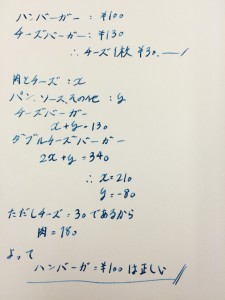 ハンバーガー : ¥100
チーズバーガー : ¥130
∴ チーズ1枚 ¥30.
肉とチーズ : x
パン、ソース、その他 : y
チーズバーガー
x+y=130
ダブルチーズバーガー
2x+y=340
∴ x=210
y=-80
ただしチーズ=30であるから
肉=180
よって
ハンバーガー=¥100は正しい